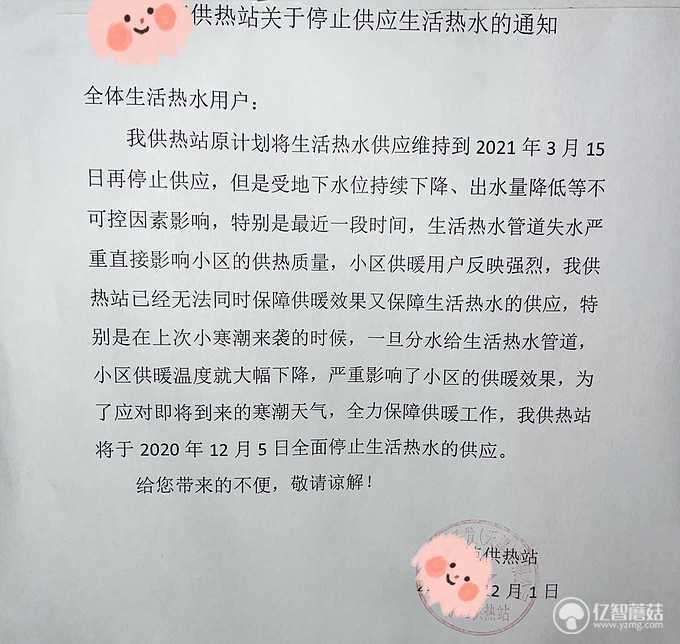 供热站关于停止供应生活热水的通知
全体生活热水用户：
我供热站原计划将生活热水供应维持到 2021 年 3 月 15
日再停止供应，但是受地下水位持续下降、出水量降低等不
可控因素影响，特别是最近一段时间，生活热水管道失水严
重直接影响小区的供热质量，小区供暖用户反映强烈，我供
热站已经无法同时保障供暖效果又保障生活热水的供应，特
别是在上次小寒潮来袭的时候，一旦分水给生活热水管道，
小区供暖温度就大幅下降，严重影响了小区的供暖效果，为
了应对即将到来的寒潮天气，全力保障供暖工作，我供热站
将于 2020 年 12 月 5 日全面停止生活热水的供应。
给您带来的不便，敬请谅解！
供热站
12 月 1 日
供热站
亿智蘑菇
www.yzmg.com